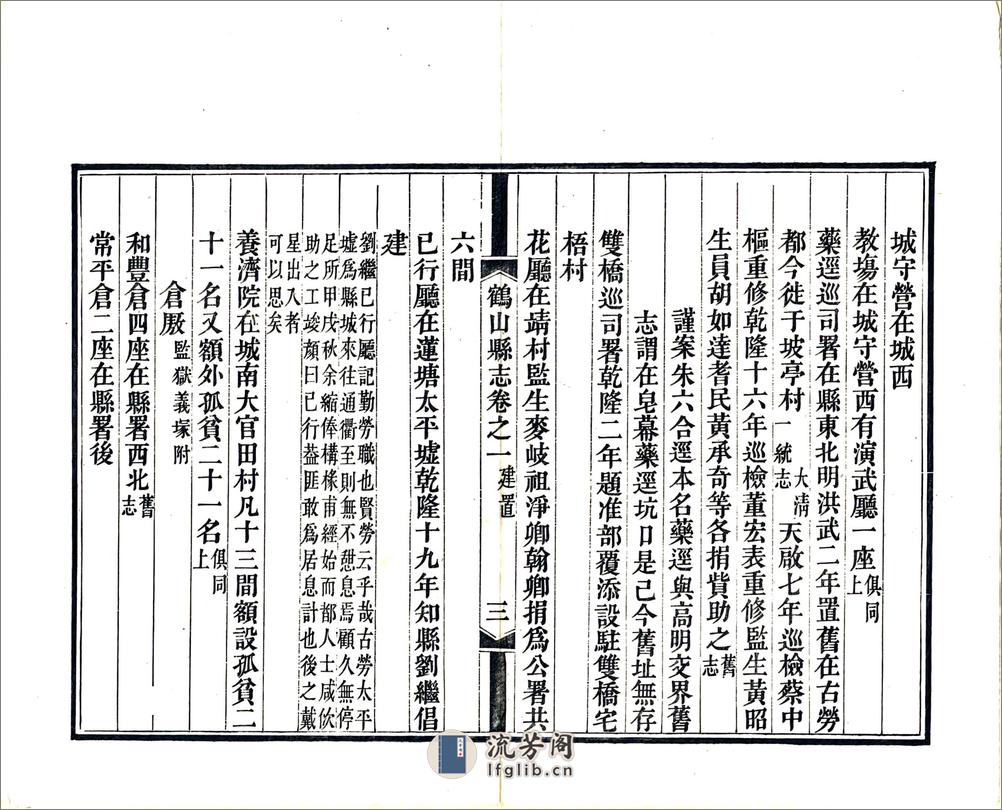 城守營在城西
教塲在城守營西有演武廳一座俱同上
藥逕巡司署在縣東北明洪武二年置舊在古勞
都今徙于坡亭村大淸一統志天啟七年巡檢蔡中
樞重修乾隆十六年巡檢董宏表重修監生黃昭
生員胡如達耆民黃承奇等各捐貲助之舊志
謹案朱六合逕本名藥逕與高明交界舊
志謂在皂幕藥逕坑口是己今舊址無存
雙橋巡司署乾隆二年題准部覆添設駐雙橋宅
梧村
花廳在靖村監生麥岐祖淨卿翰卿捐爲公署共
鶴山縣志卷之一 建置 三
六間
已行廳在蓮塘太平墟乾隆十九年知縣劉繼倡
建
劉繼已行廳記勤勞職也賢勞云乎哉古勞太平
墟爲縣城來往通衢至則無不憇息焉顧久無停
足所甲戌秋余縮俸構椽甫經始而都人士咸佽
助之工竣顏曰已行葢匪敢爲居息計也後之戴
星出入者
可以思矣
養濟院在城南大官田村凡十三間額設孤貧二
十一名又額外孤貧二十一名俱同上
倉厫監獄義塚附
和豐倉四座在縣署西北舊志
常平倉二座在縣署後
流芳阁
lfglib.cn